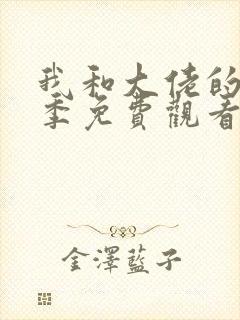 我和大佬的
季免費觀看
金澤藍子